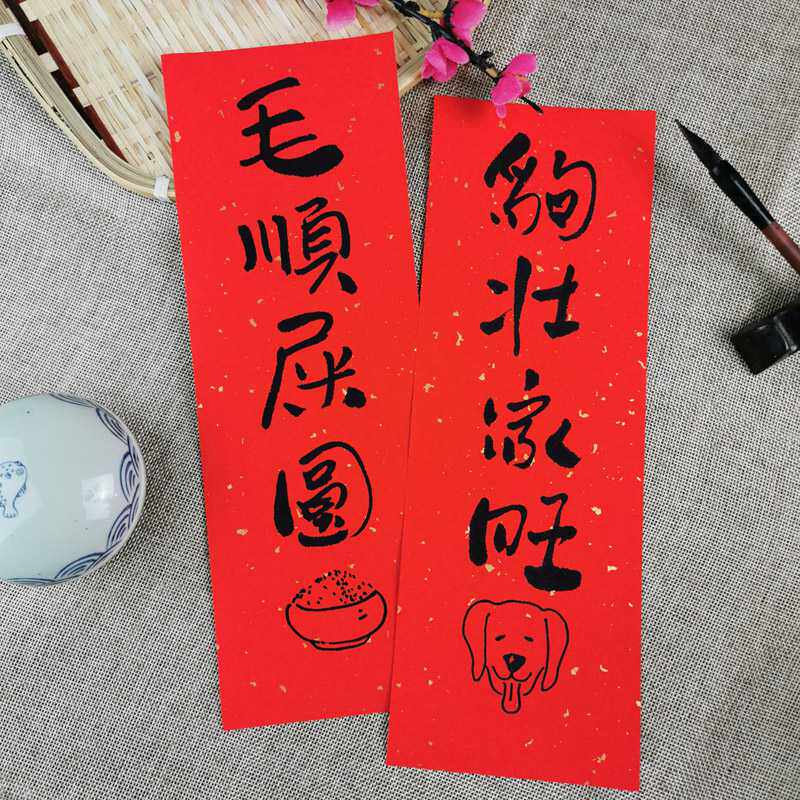 豿壯家旺
毛順屎圓